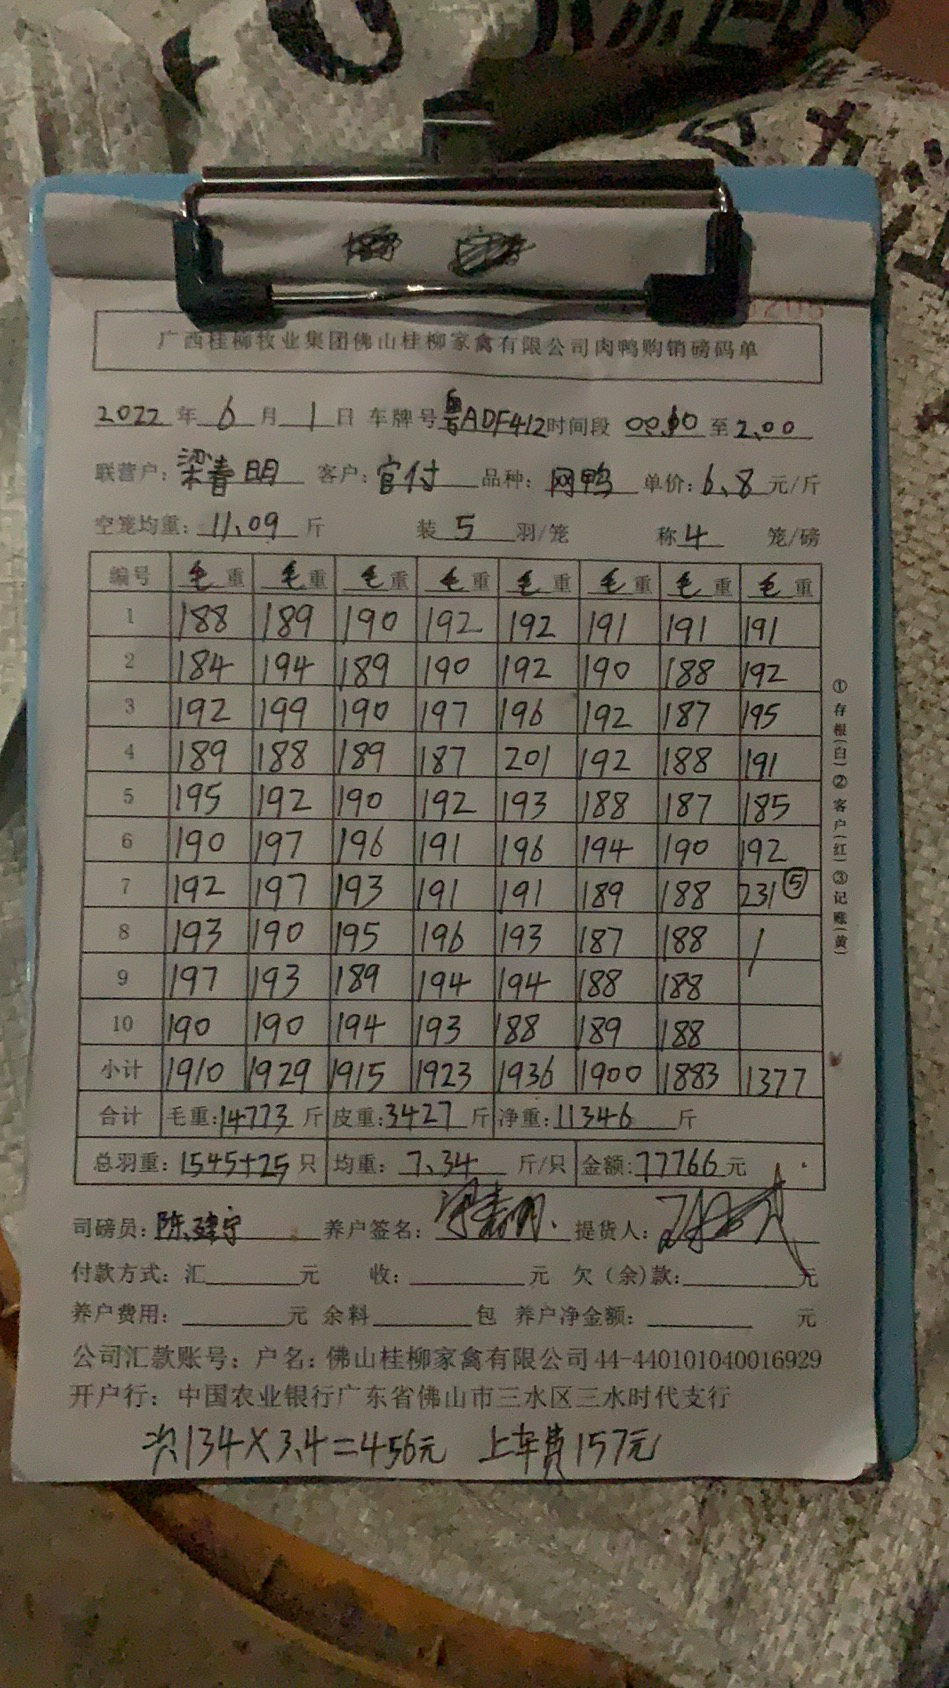 广西桂柳牧业集团佛山桂柳家禽有限公司肉鸭购销磅码单
2022 年 6 月 1 日 车牌号 ADF412 时间段 至 2.00
联营户: 梁春明 客户: 官付 品种: 网鸭 单价: 6.8 元/斤
空笼均重: 11.09 斤 装 5 羽/笼 称 4 笼/磅
编号 毛重 毛重 毛重 毛重 毛重 毛重 毛重 毛重
1 188 189 190 192 192 191 191 191
2 184 194 189 190 192 190 188 192
3 192 199 190 197 196 192 187 195
4 189 188 189 187 201 192 188 191
5 195 192 190 192 193 188 187 185
6 190 197 196 191 196 194 190 192
7 192 197 193 191 191 189 188 231 ⑤
8 193 190 195 196 193 187 188 /
9 197 193 189 194 194 188 188
10 190 190 194 193 188 189 188
小计 1910 1929 1915 1923 1936 1900 1883 1377
合计 毛重: 14773 斤 皮重: 3427 斤 净重: 11346 斤
总羽重: 1545+25 只 均重: 7.34 斤/只 金额: 77766 元
司磅员: 陈建宇 养户签名: 梁春明 提货人:
付款方式: 汇 元 收: 元 欠(余)款: 元
养户费用: 元 余料 包 养户净金额: 元
公司汇款账号: 户名: 佛山桂柳家禽有限公司 44-440101040016929
开户行: 中国农业银行广东省佛山市三水区三水时代支行
次134×3.4=456元 上车费157元
①存根(白)②客户(红)③记账(黄)